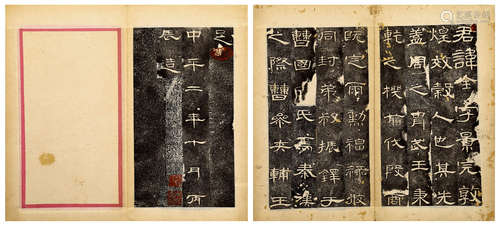 君諱全字景完敦
煌效穀人也其先
蓋周之胄武王秉
乾之機翦伐殷商
既定爾勳福祿攸
同封弟叔振鐸于
曹國氏焉秦漢
之際曹參夾輔王
足
中平二年十月丙
辰造